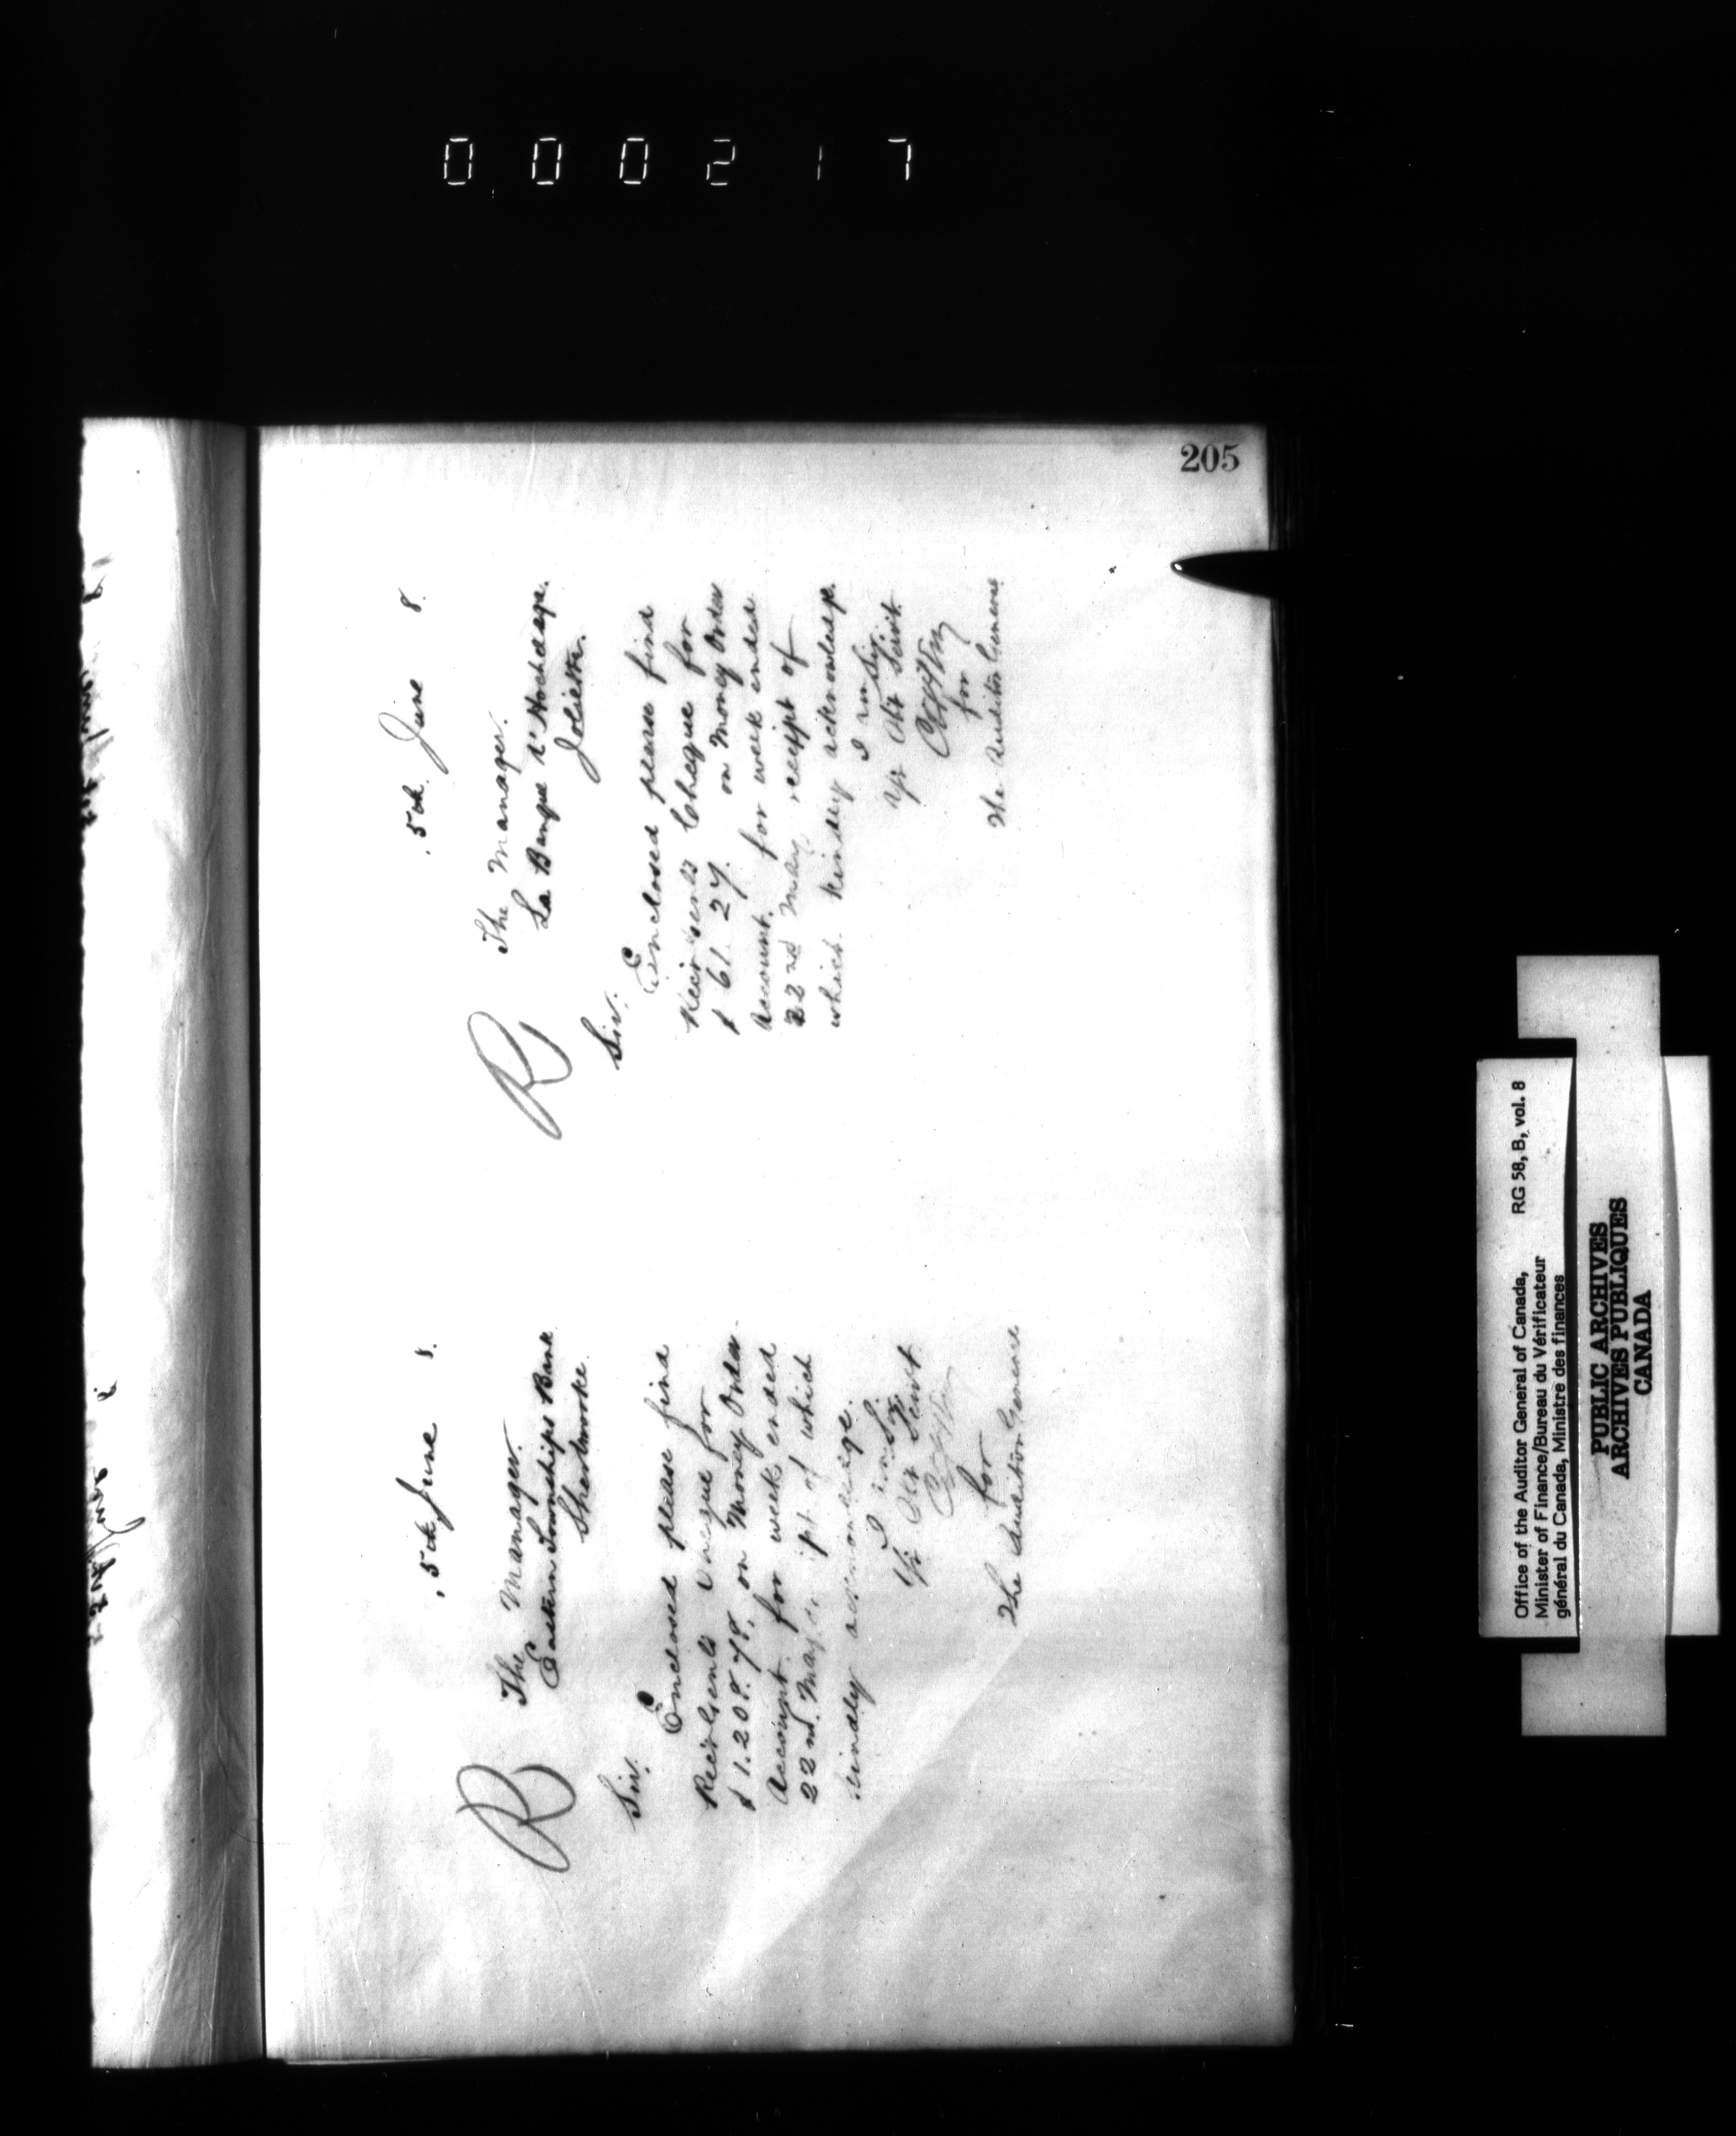 000217
205
5th June 8.
R
The Manager.
Eastern Townships Bank
Sherbrooke.
Sir.
Enclosed please find
Recr Genls cheque for
$1.208.78. on Money Order
Account for week ended
22nd. May receipt of which
kindly acknowledge.
I am Sir
Yr Obt Servt
for
The Auditor General
5th June 8.
R
The Manager.
La Banque d'Hochelaga.
Joliette.
Sir.
Enclosed please find
Recr Genls Cheque for
$ 61.27. on Money Order
Account. for week ended
22nd May receipt of
which kindly acknowledge.
I am Sir.
Yr Obt Servt.
for
The Auditor General
Office of the Auditor General of Canada, RG 58, B, vol. 8
Minister of Finance/Bureau du Vérificateur
général du Canada, Ministre des finances
PUBLIC ARCHIVES
ARCHIVES PUBLIQUES
CANADA